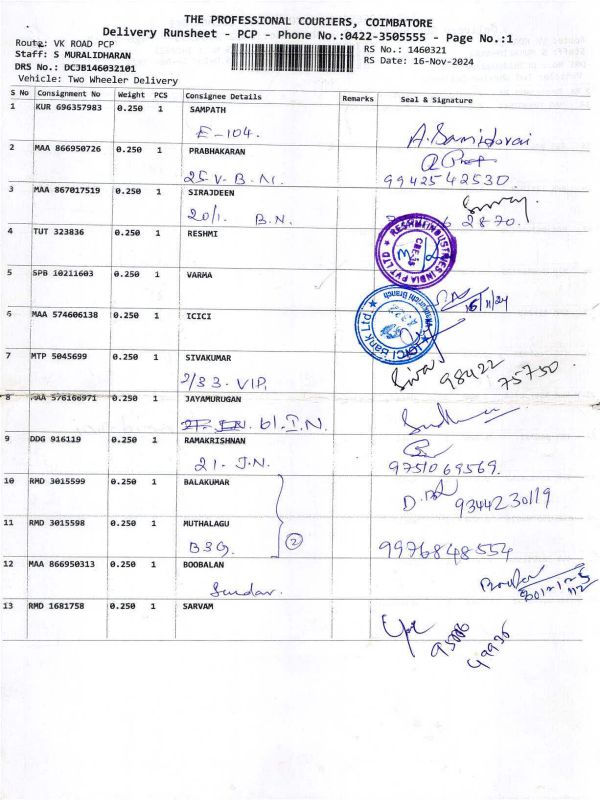 THE PROFESSIONAL COURIERS, COIMBATORE
Delivery Runsheet - PCP - Phone No.:0422-3505555 - Page No.:1
Route: VK ROAD PCP
RS No.: 1460321
Staff: S MURALIDHARAN
RS Date: 16-Nov-2024
DRS No.: DCJB146032101
Vehicle: Two Wheeler Delivery
S No Consignment No Weight PCS Consignee Details Remarks Seal & Signature
1 KUR 696357983 0.250 1 SAMPATH
E-104.
2 MAA 866950726 0.250 1 PRABHAKARAN
25-V.B.N. 9942542530.
3 MAA 867017519 0.250 1 SIRAJDEEN
20/1. B.N. 2870.
4 TUT 323836 0.250 1 RESHMI
RESHMI INDUSTRIES INDIA PVT LTD
5 SPB 10211603 0.250 1 VARMA
6 MAA 574606138 0.250 1 ICICI
ICICI Bank Ltd.
7 MTP 5045699 0.250 1 SIVAKUMAR
2/33. VIP. Siva 98422 75750
8 MAA 576166971 0.250 1 JAYAMURUGAN
61. I.N.
9 DDG 916119 0.250 1 RAMAKRISHNAN
21. J.N. 9751069569.
10 RMD 3015599 0.250 1 BALAKUMAR
9344230119
11 RMD 3015598 0.250 1 MUTHALAGU
B3G. 2 9976848554
12 MAA 866950313 0.250 1 BOOBALAN
Sundar.
13 RMD 1681758 0.250 1 SARVAM